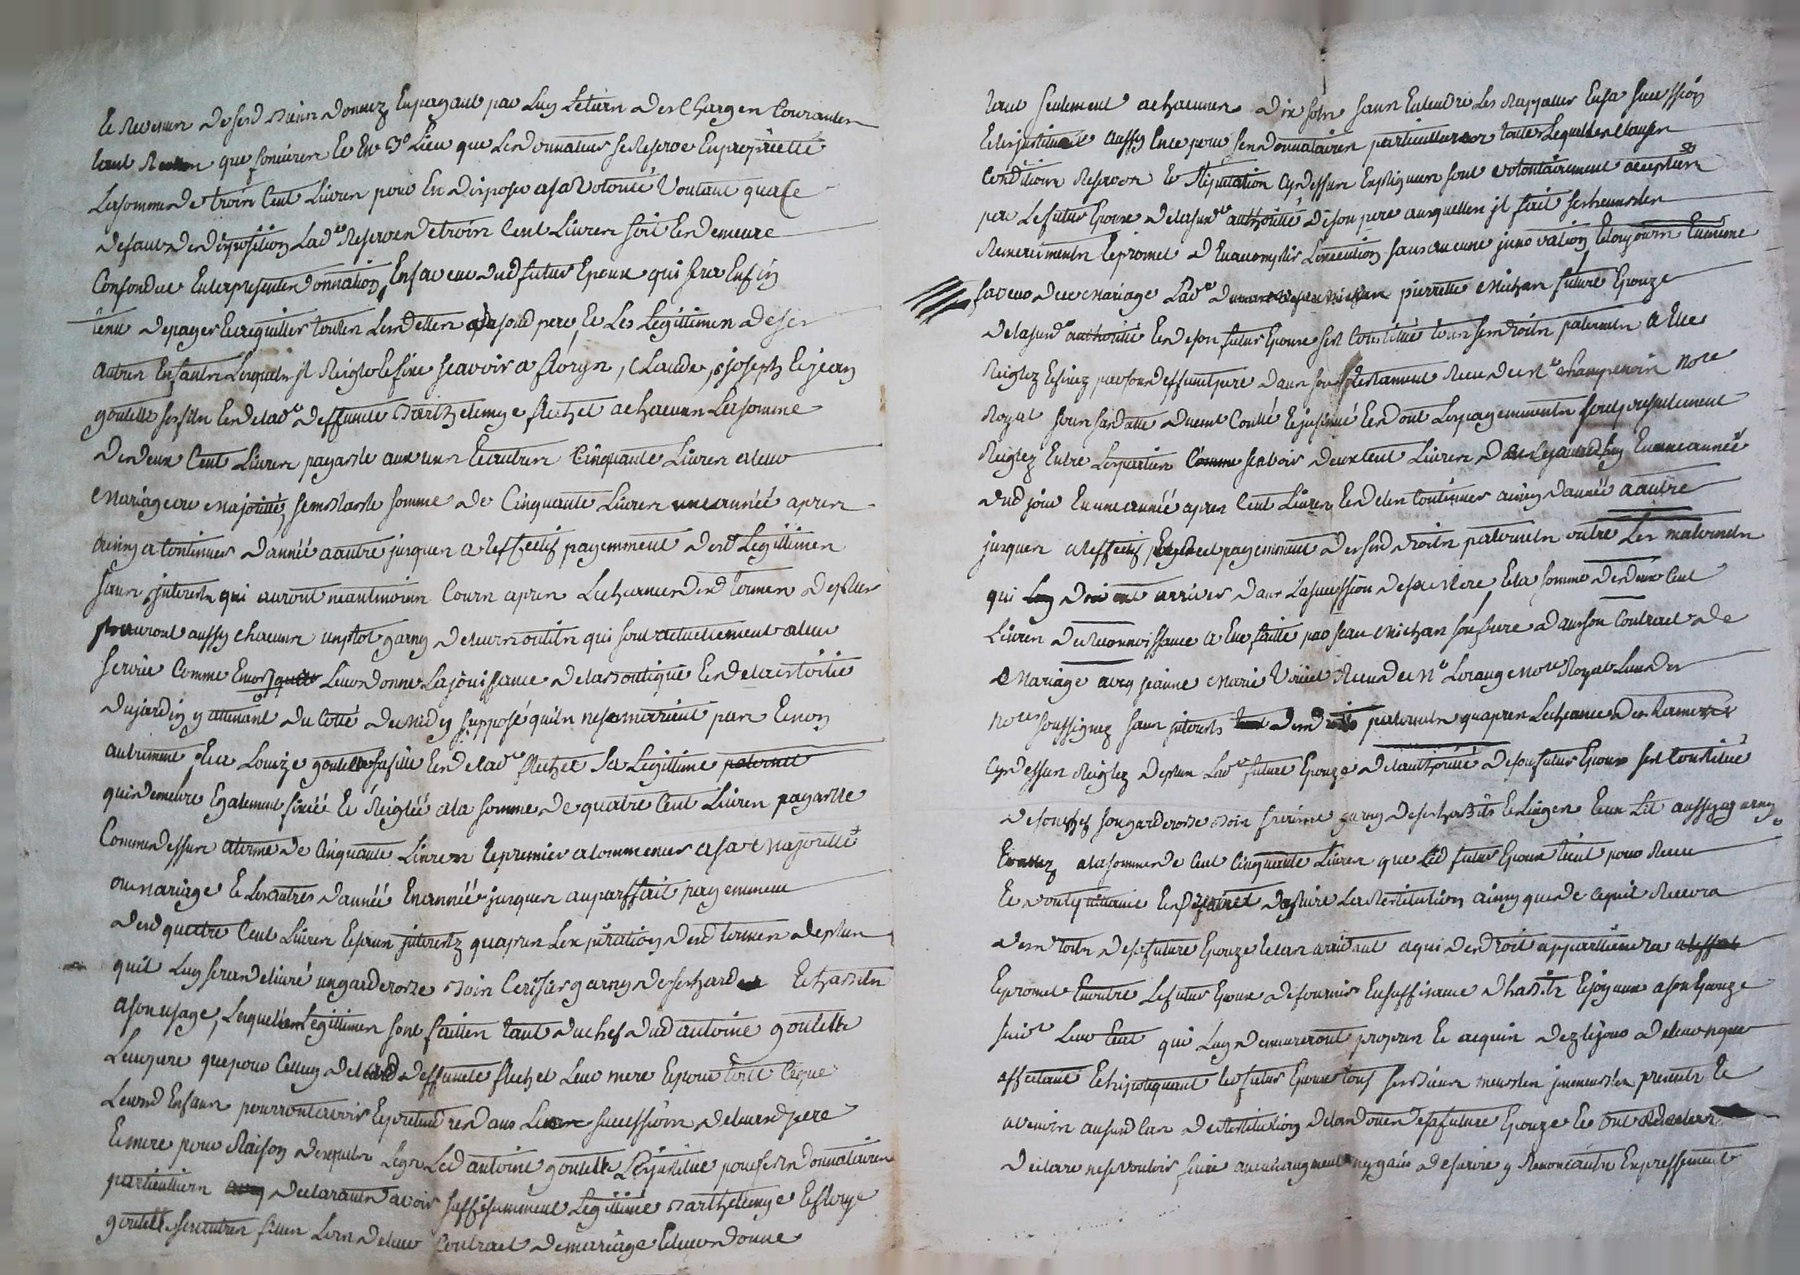 le Revenu desesd biens donnez En payant par Luy Letiers des Charges Courantes
tant que foncieres Et En Lieu que Lesd donnateur se Reserve En proprietté
La somme de trois Cent Livres pour En disposer a sa Volonté Voulant qua Ce
defaut de disposition Lade Reserve de trois Cent Livres soit Et demeure
Confondue En la presente donnation En faveur dud futur Epoux qui sera Enfin
tenu de payer Et acquitter toutes Les dettes de sond pere, Et Les Legittimes de ses
autres Enfants Lesquels jl Reigle Et fixe scavoir a florys, Claude, joseph Et jean
goutelle ses fils Et de lade deffunte Barthelemye flechet a chacun La somme
de deux Cent Livres payable aux uns Et autres Cinquante Livres a leur
Mariage ou Majorité, semblable somme de Cinquante Livres une année apres
Et ainsy a Continuer d'année a autre jusques a l'effectif payemment desd Legittimes
sans jnterests qui auront neantmoins Cours apres Lecheance desd termes de plus
auront aussy chacun un garny de leurs outils qui sont actuellement a leur
service Comme Encor Leur donne La jouissance de la boutique Et de la moitié
du jardin y attenant du Cotté de midy supposé qu'ils ne se marient pas Et non
autrement, Et a Louize goutelle sa fille Et de lade flechet Sa Legittime paternel
qui demeure Egalement fixée Et Reiglée a la somme de quatre Cent Livres payable
Comme dessus a terme de Cinquante Livres Le premier a Commencer a sa Majorité
ou mariage Et Les autres d'année En année jusques au parffait payemment
desd quatre Cent Livres Et sans jnterestz qu'apres Lexpiration desd termes de plus
quil Luy sera delivré un garderobe bois Cerisier garny de ses hardes Et habits
a son usage, Lesquelles Legittimes sont faittes tant du chef dud antoine goutelle
Leur pere que pour Celluy de lad deffunte flechet Leur mere Et pour tout Ce que
Leursd Enfans pourront avoir Et pretendre dans Leur succession de leursd pere
Et mere pour Raison desquels Legs Led antoine goutelle Les jnstitue pour ses donnataires
particulliers declarant avoir suffisamment Legittimé Barthelemye Et florye
goutelle ses autres filles Lors de leur Contract de mariage Et leur donne
tant seulement a chacunes dix sols sans Entendre Les Rappeller En sa succession
Et les jnstitue aussy En ce pour ses donnataires particullieres toutes Lesquelles Clauses
Conditions Reserves Et Stipulation Cy dessus Expliquées sont volontairement acceptées
par Le futur Epoux de la sude authorité de son pere auxquelles jl fait ses humbles
Remerciments Et promet d'En accomplir Lexecution sans aucune jnnovation Et toujours En meme
faveur du Mariage Lade pierrette Michan future Epouze
de la sude authorité Et de son futur Epoux sest Constitué tous ses droits paternels a Elle
Reiglez Et fixez par sond deffunt pere dans son testament Receu de Me Champenois Nore
Royal sous sa datte duement Contté Et jnsinué Et dont Les payemments sont presentement
Reiglez Entre Les parties scavoir deux Cent Livres En une année
dud jour En une année apres Cent Livres Et de la Continuer ainsy d'année a autre
jusques a leffectif payemment desesd droits paternels outre Les maternels
qui arriver dans La succession de sa Mere, Et la somme de deux Cent
Livres de Reconnoissance a Elle faitte par jean Michan son frere dans son Contract de
Mariage avec jeanne Marie Receu de Me Lorange Nore Royal Lun des
Nores soussignez sans jnterests desd paternels qu'apres Lecheance des termes
Cy dessus Reiglez de plus Lade future Epouze de l'authorité de son futur Epoux sest Constitué
de son chef son garderobe bois garny de ses habits Et Linges Et un Lit aussy garny
a la somme de Cent Cinquante Livres que Led futur Epoux tient pour Receu
Et dont quittance Et promet d'En faire La Restitution ainsy que de Ce quil Recevra
desd droits de sa future Epouze Le Cas arrivant a qui de droit appartiendra
Et promet En outre Le futur Epoux de fournir En suffisance d'habits Et joyaux a son Epouze
suivt Leur Etat qui Luy demeureront propres Et acquis dez Le jour de leur nopces
affectant Et hipotequant Led futur Epoux tous ses biens meubles jmmeubles presents Et
avenir aususd Cas de Restitution de la dotte de sa future Epouze Et ont
declare ne se vouloir faire aucun augment ny gain de survie y Renoncants Expressement